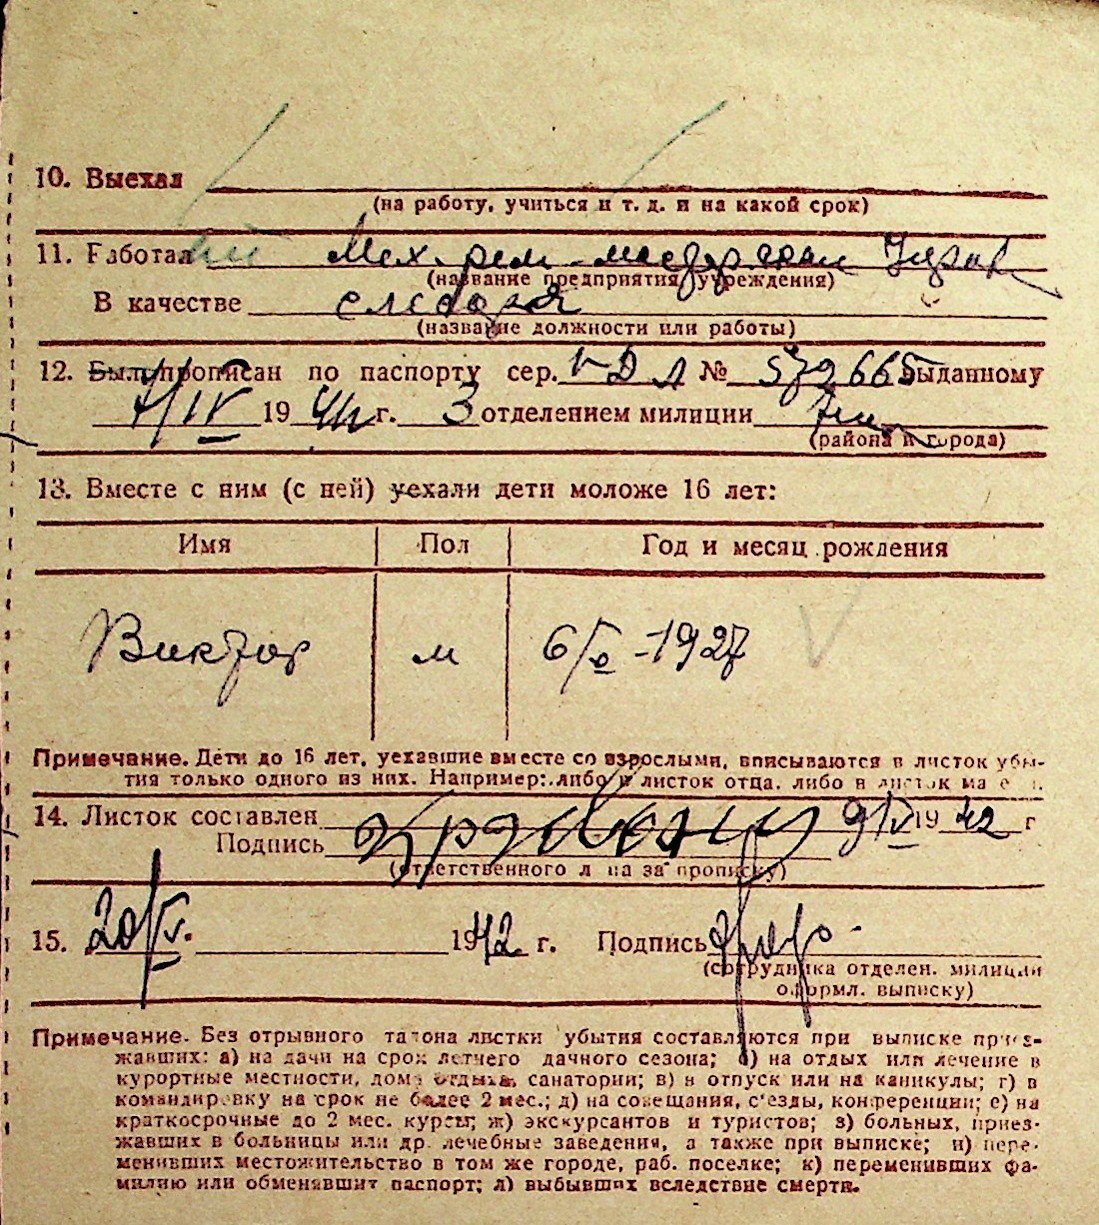 10. Выехал
(на работу, учиться и т. д. и на какой срок)
11. Работал Мех. рем.
(название предприятия, учреждения)
В качестве слесаря
(название должности или работы)
12. Был прописан по паспорту сер. № 572665 выданному
19 г. 3 отделением милиции
(района и города)
13. Вместе с ним (с ней) уехали дети моложе 16 лет:
Имя Пол Год и месяц рождения
Виктор м 6/X-1927
Примечание. Дети до 16 лет, уехавшие вместе со взрослыми, вписываются в листок убы-
тия только одного из них. Например: либо в листок отца, либо в листок ма е и.
14. Листок составлен 9/IV 1942 г
Подпись
(ответственного л на за прописку)
15. 20/V. 1942 г. Подпись
(сотрудника отделен. милиции
оформл. выписку)
Примечание. Без отрывного талона листки убытия составляются при выписке приез-
жавших: а) на дачи на срок летнего дачного сезона; б) на отдых или лечение в
курортные местности, дома отдыха, санатории; в) в отпуск или на каникулы; г) в
командировку на срок не более 2 мес.; д) на совещания, с'езды, конференции; е) на
краткосрочные до 2 мес. курсы; ж) экскурсантов и туристов; з) больных, приез-
жавших в больницы или др. лечебные заведения, а также при выписке; и) пере-
менивших местожительство в том же городе, раб. поселке; к) переменивших фа-
милию или обменявших паспорт; л) выбывших вследствие смерти.